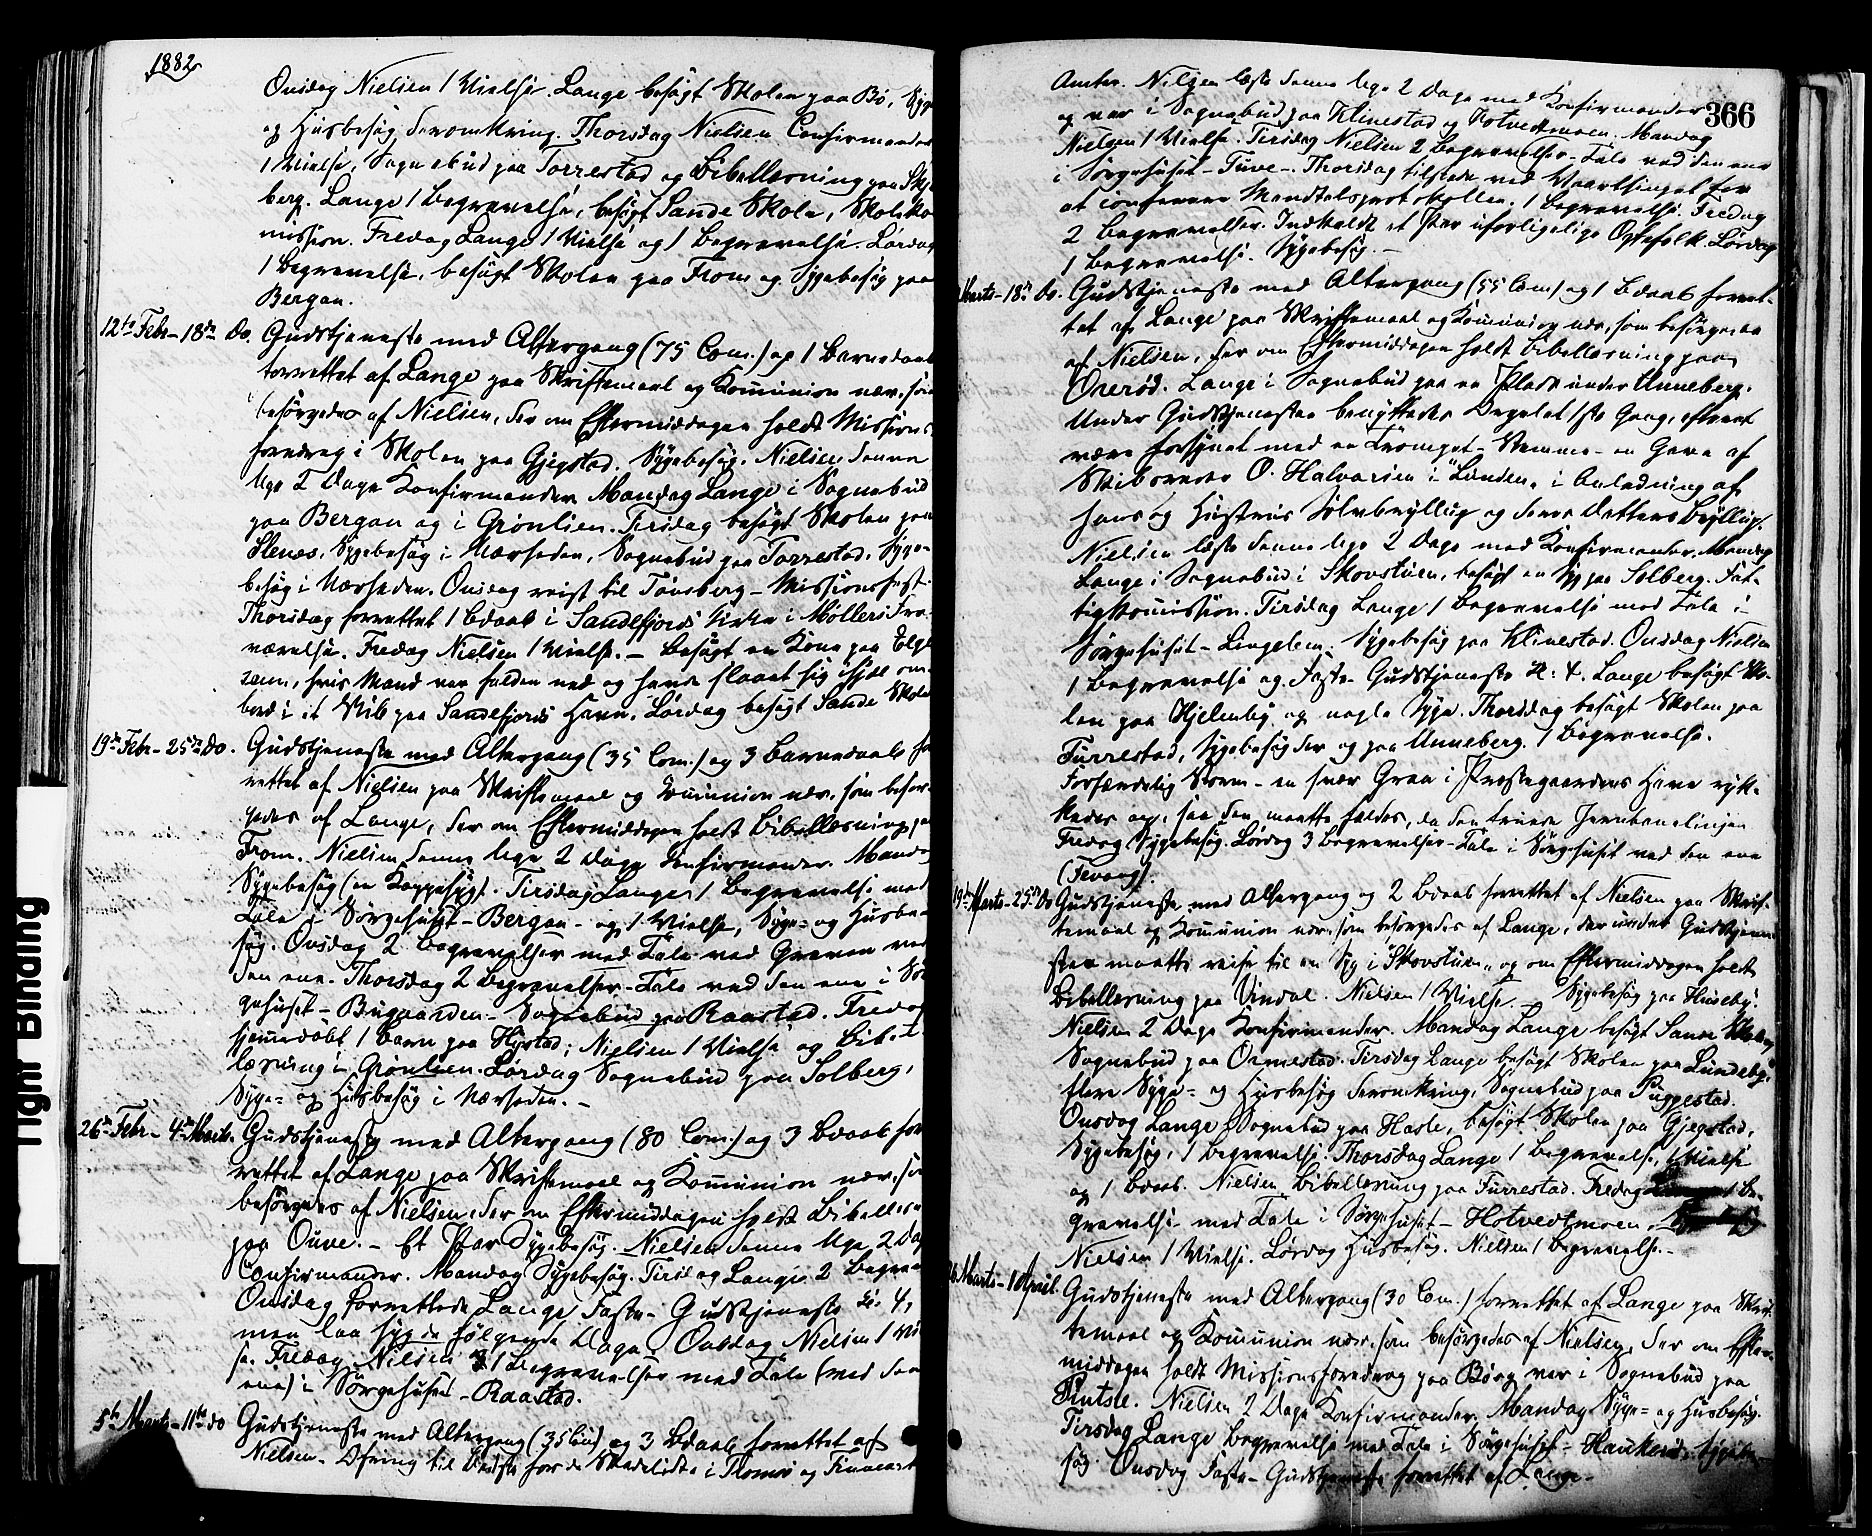 1882
Onsdag Nielsen 1 Vielse. Lange besøgt Skolen paa Bø, Syge
og Husbesøg deromkring. Thorsdag Nielsen Confirmander
1 Vielse, Sognebud paa Torrestad og Bibellæsning paa
berg. Lange 1 Begravelse, besøgt Sande Skole, Skoleko
mission. Fredag Lange 1 Vielse og 1 Begravelse. Lørdag
1 Begravelse, besøgt Skolen paa From og Sygebesøg paa
Bergan.
12te Febr - 18de Do. Gudstjeneste med Altergang (75 Com.) og 1 Barnedaab
forrettet af Lange paa Skriftemaal og Komunion nær, som
besørgedes af Nielsen, der om Eftermiddagen holdt Missions
foredrag i Skolen paa Gjegstad. Sygebesøg. Nielsen denne
Uge 2 Dage Konfirmander. Mandag Lange i Sognebud
paa Bergan og i Grønlien. Tirsdag besøgt Skolen paa
Stenes, Sygebesøg i Nærheden, Sognebud paa Torrestad, Syge-
besøg i Nærheden. Onsdag reist til Tønsberg - Missionsfest.
Thorsdag forrettet 1 Bdaab i Sandefjords Kirke i Møllers Fra-
værelse. Fredag Nielsen 1 Vielse. - Besøgt en Kone paa
, hvis Mand var falden ned og havde slaaet sig ihjel om-
bord i et Skib paa Sandefjords Havn. Lørdag besøgt Sande Skole
19de Febr - 25de Do. Gudstjeneste med Altergang (35 Com.) og 3 Barnedaab for
rettet af Nielsen paa Skriftemaal og Komunion nær, som besør-
gedes af Lange, der om Eftermiddagen holdt Bibellæsning paa
From. Nielsen denne Uge 2 Dage Konfirmander. Mandag
Sygebesøg (en Koppesyg). Tirsdag Lange 1 Begravelse med
Tale i Sørgehuset - Bergan - og 1 Vielse, Syge- og Husbe-
søg. Onsdag 2 Begravelser med Tale ved Graven ved
den ene. Thorsdag 2 Begravelser - Tale ved den ene i Sør
gehuset - Bugaarden - Sognebud paa Raastad. Fredag
hjemmedøbt 1 Barn paa Hystad; Nielsen 1 Vielse og Bibel
læsning i Grønlien. Lørdag Sognebud paa Solberg,
Syge- og Husbesøg i Nærheden. -
26de Febr - 4de Marts. Gudstjeneste med Altergang (80 Com.) og 3 Bdaab for
rettet af Lange paa Skriftemaal og Komunion nær, som
besørgedes af Nielsen, der om Eftermiddagen holdt Bibellæsn
paa Ouve. - Et Par Sygebesøg. Nielsen denne Uge 2 Dage
Confirmander. Mandag Sygebesøg. Tirsdag Lange 2 Begrav
Onsdag forrettede Lange Faste-Gudstjeneste Kl. 4,
men laa syg de følgende Dage. Onsdag Nielsen 1 Vi
se. Fredag Nielsen 1 Begravelser med Tale (ved den
ene) i Sørgehuset - Raastad.
5te Marts - 11te Do Gudstjeneste med Altergang (35 Com) og 3 Bdaab forrettet af
Nielsen - Ofring til for de Skadelidte i Tromsø og Finmark
366
Amter. Nielsen læste denne Uge 2 Dage med Konfirmander
og var i Sognebud paa Klinestad og Hotvedtmoen. Mandag
Nielsen 1 Vielse. Tirsdag Nielsen 2 Begravelser - Tale ved den ene
i Sørgehuset - Tuve -. Thorsdag tilstede ved Vaartinget for
at conferere Mandtalsprotokollen. 1 Begravelse. Fredag
2 Begravelser. Indkaldt et Par uforligelige Ægtefolk. Lørdag
1 Begravelse. Sygebesøg. -
Marts - 18de Do. Gudstjeneste med Altergang (55 Com) og 1 Bdaab forret-
tet af Lange paa Skriftemaal og Komunion nær, som besørgedes
af Nielsen, der om Eftermiddagen holdt Bibellæsning paa
Ørerød. Lange i Sognebud paa en Plads under Unneberg.
Under Gudstjenesten benyttedes Orgelet 1ste Gang, efter at
være forsynet med en Trompet-Stemme - en Gave af
Skibsreder O. Halvorsen i "Lunden" i Anledning af
hans og Hustrus Sølvbryllup og deres Datters Bryllup.
Nielsen læste denne Uge 2 Dage med Konfirmander. Mandag
Lange i Sognebud i Skovstuen, besøgt en Syg paa Solberg. Fat-
tigkomission. Tirsdag Lange 1 Begravelse med Tale i
Sørgehuset - Lingelem. Sygebesøg paa Klinestad. Onsdag Nielsen
1 Begravelse og Faste-Gudstjeneste Kl. 4. Lange besøgt Sko-
len paa Hjelmby og nogle Syge. Thorsdag besøgt Skolen paa
Furrestad, Sygebesøg der og paa Unneberg. 1 Begravelse.
Forfærdelig Storm - en svær Gran i Præstegaardens Have ryk-
kedes op, saa den maatte fældes, da den truede Jernbanelinjen
Fredag Sygebesøg. Lørdag 3 Begravelser - Tale i Sørgehuset ved den ene
(Fevang).
19de Marts - 25de Do Gudstjeneste med Altergang og 2 Bdaab forrettet af Nielsen paa Skrif-
temaal og Komunion nær, som besørgedes af Lange, der under Gudstjene-
sten maatte reise til en Syg i "Skovstuen" og om Eftermiddagen holdt
Bibellæsning paa Vindal. Nielsen 1 Vielse. - Sygebesøg paa Huseby.
Nielsen 2 Dage Konfirmander. Mandag Lange besøgt Sande Skole,
Sognebud paa Ormestad. Tirsdag Lange besøgt Skolen paa Lundeby,
flere Syge- og Husbesøg deromkring, Sognebud paa Puggestad.
Onsdag Lange Sognebud paa Hasle, besøgt Skolen paa Gjegstad,
Sygebesøg, 1 Begravelse. Thorsdag Lange 1 Begravelse, 1 Vielse
og 1 Bdaab. Nielsen Bibellæsning paa Furrestad. Fredag 1 Be-
gravelse med Tale i Sørgehuset - Hotvedtmoen.
Nielsen 1 Vielse. Lørdag Husbesøg. Nielsen 1 Begravelse. -
26 Marts - 1 April. Gudstjeneste med Altergang (30 Com.) forrettet af Lange paa Skrif-
temaal og Komunion nær, som besørgedes af Nielsen, der om Efter-
middagen holdt Missionsforedrag paa Børg, var i Sognebud paa
Nielsen 2 Dage Konfirmander. Mandag Syge- og Husbesøg.
Tirsdag Lange Begravelse med Tale i Sørgehuset - Haukerød, Sygebe-
søg. Onsdag Faste-Gudstjeneste forrettet af Lange -
Tight Binding